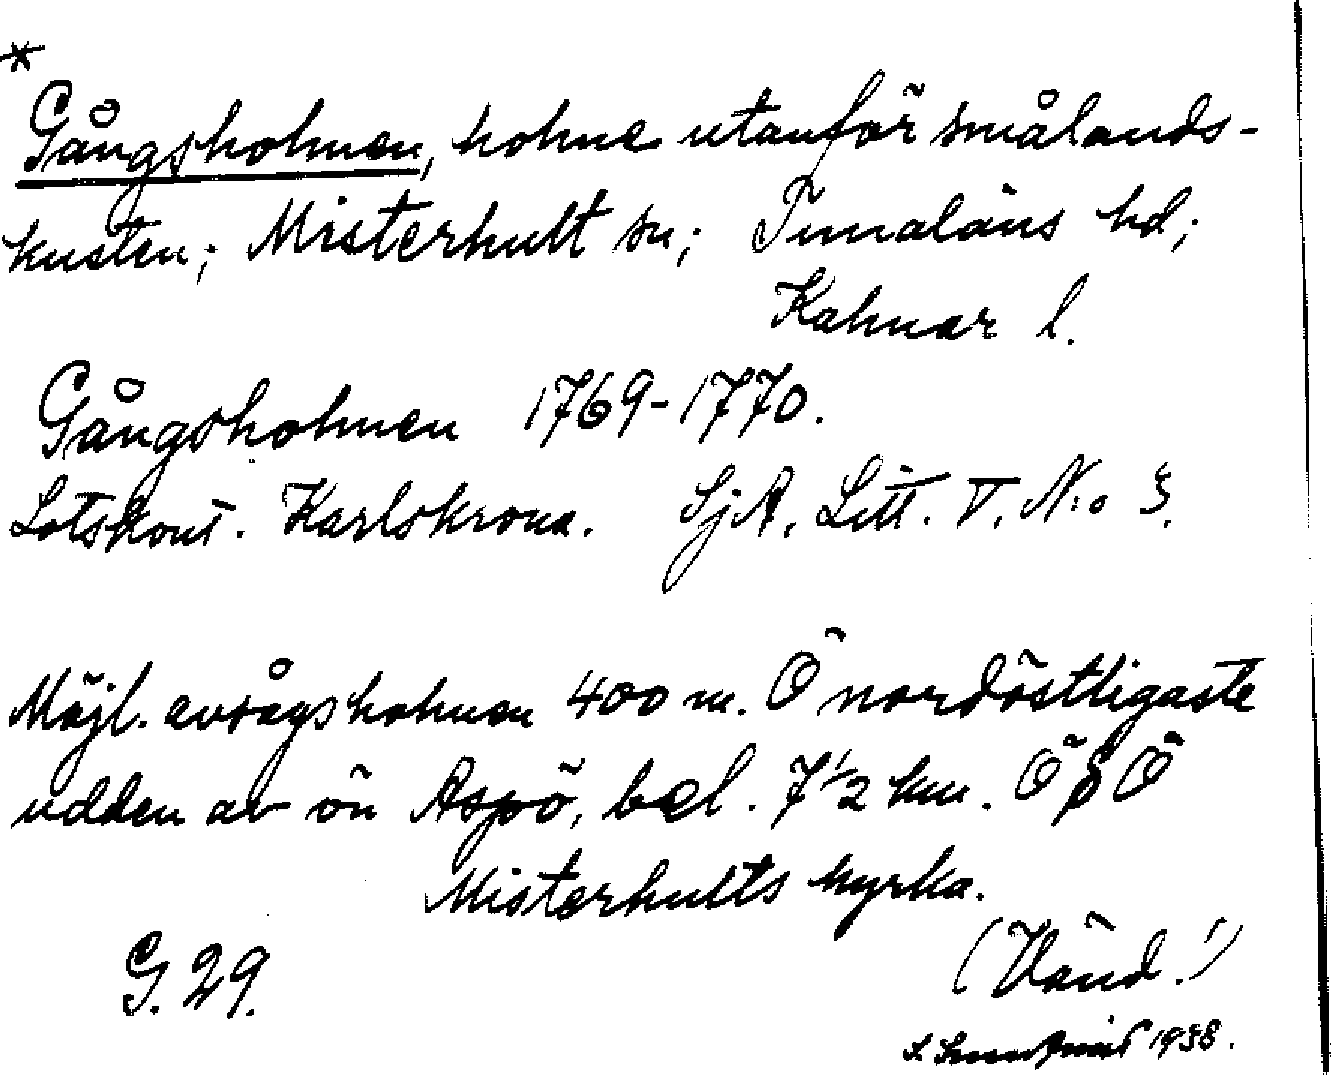 *
Gångsholmen, holme utanför smålands-
kusten; Misterhult sn; Tunaläns hd;
Kalmar l.
Gångsholmen 1769-1770.
Lotskont. Karlskrona. SjA. Litt. V. N:o 3.
Möjl. avsågsholmen 400 m. Ö nordöstligaste
udden av ön Aspö, bel. 7 1/2 km. ÖSÖ
Misterhults kyrka.
G. 29.
(Vänd!)
1938.